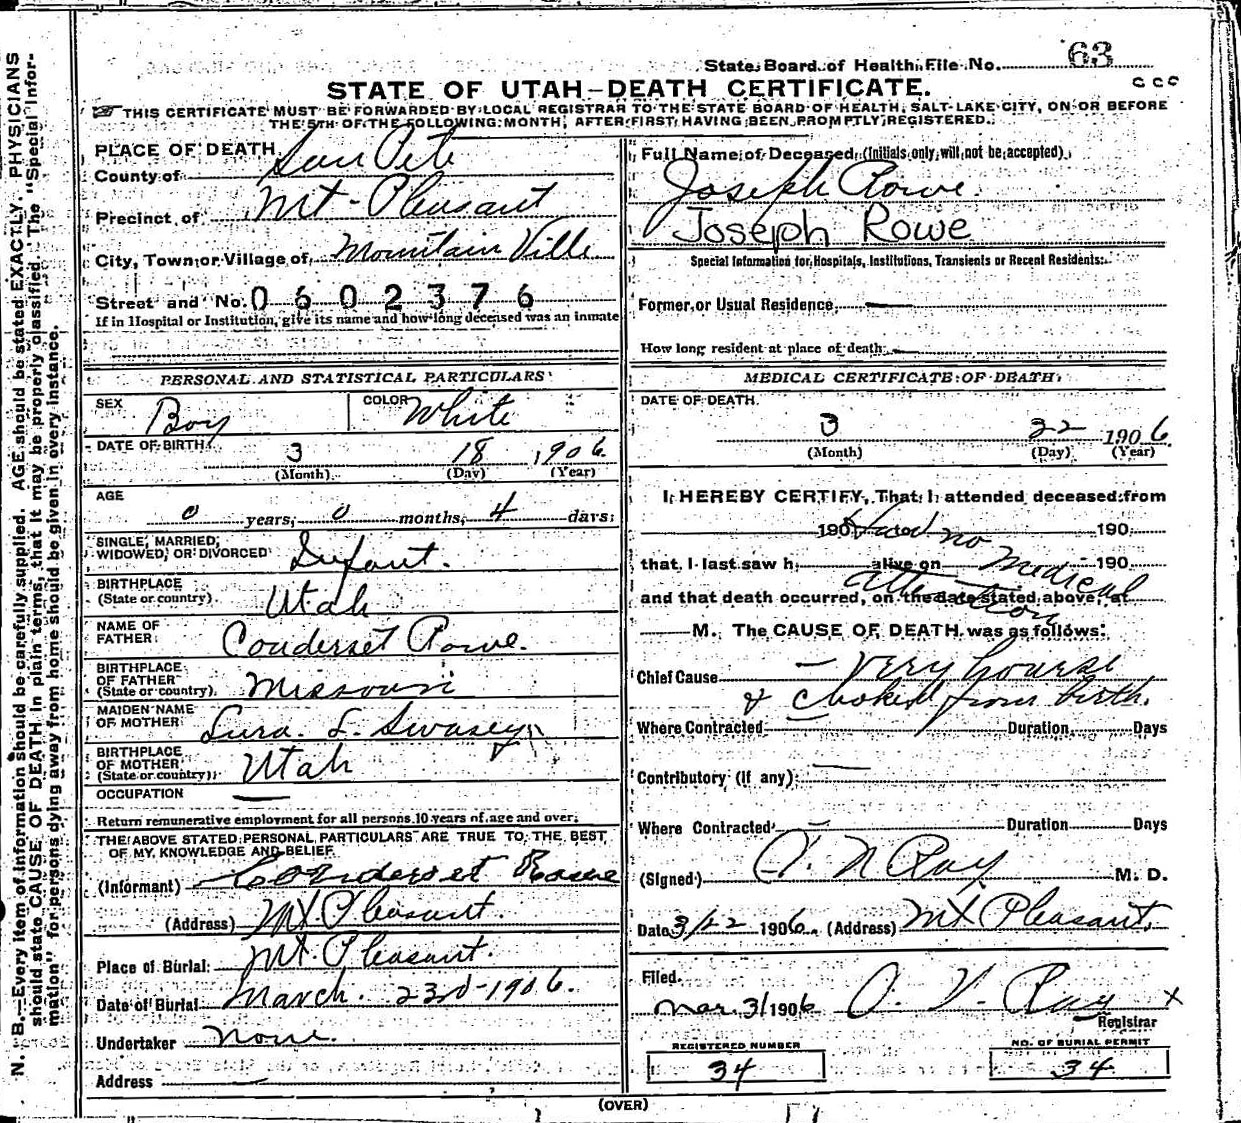 State Board of Health File No. 63
STATE OF UTAH—DEATH CERTIFICATE.
THIS CERTIFICATE MUST BE FORWARDED BY LOCAL REGISTRAR TO THE STATE BOARD OF HEALTH, SALT LAKE CITY, ON OR BEFORE
THE 5TH OF THE FOLLOWING MONTH, AFTER FIRST HAVING BEEN PROMPTLY REGISTERED.
PLACE OF DEATH
County of San Pete
Precinct of Mt-Pleasant
City, Town or Village of Mountain Ville
Street and No. 0602376
If in Hospital or Institution, give its name and how long deceased was an inmate
PERSONAL AND STATISTICAL PARTICULARS
SEX Boy COLOR White
DATE OF BIRTH 3 18 1906
(Month) (Day) (Year)
AGE
0 years, 0 months, 4 days
SINGLE, MARRIED,
WIDOWED, OR DIVORCED Infant.
BIRTHPLACE
(State or country) Utah
NAME OF
FATHER Conderset Rowe.
BIRTHPLACE
OF FATHER
(State or country) Missouri
MAIDEN NAME
OF MOTHER Lura. L. Swasey
BIRTHPLACE
OF MOTHER
(State or country) Utah
OCCUPATION —
Return remunerative employment for all persons 10 years of age and over.
THE ABOVE STATED PERSONAL PARTICULARS ARE TRUE TO THE BEST
OF MY KNOWLEDGE AND BELIEF
(Informant) Conderset Rowe
(Address) Mt. Pleasant.
Place of Burial Mt. Pleasant.
Date of Burial March. 23rd-1906.
Undertaker None.
Address —
Full Name of Deceased (Initials only will not be accepted)
Joseph Rowe.
Joseph Rowe
Special Information for Hospitals, Institutions, Transients or Recent Residents:
Former or Usual Residence —
How long resident at place of death —
MEDICAL CERTIFICATE OF DEATH
DATE OF DEATH
3 22 1906
(Month) (Day) (Year)
I HEREBY CERTIFY, That I attended deceased from
190 Had no 190
that I last saw h alive on Medical 190
and that death occurred, on the date stated above, at attention
M. The CAUSE OF DEATH was as follows:
Chief Cause — Very hourse
& choked from birth.
Where Contracted Duration Days
Contributory (if any) —
Where Contracted — Duration Days
(Signed) A. N Ray M. D.
Date 3/22 1906. (Address) Mt Pleasant.
Filed
Mar. 31 1906 O. V. Ray x
Registrar
REGISTERED NUMBER
34
NO. OF BURIAL PERMIT
34
(OVER)
N. B.—Every item of information should be carefully supplied. AGE should be stated EXACTLY. PHYSICIANS
should state CAUSE OF DEATH in plain terms, that it may be properly classified. The "Special Infor-
mation" for persons dying away from home should be given in every instance.